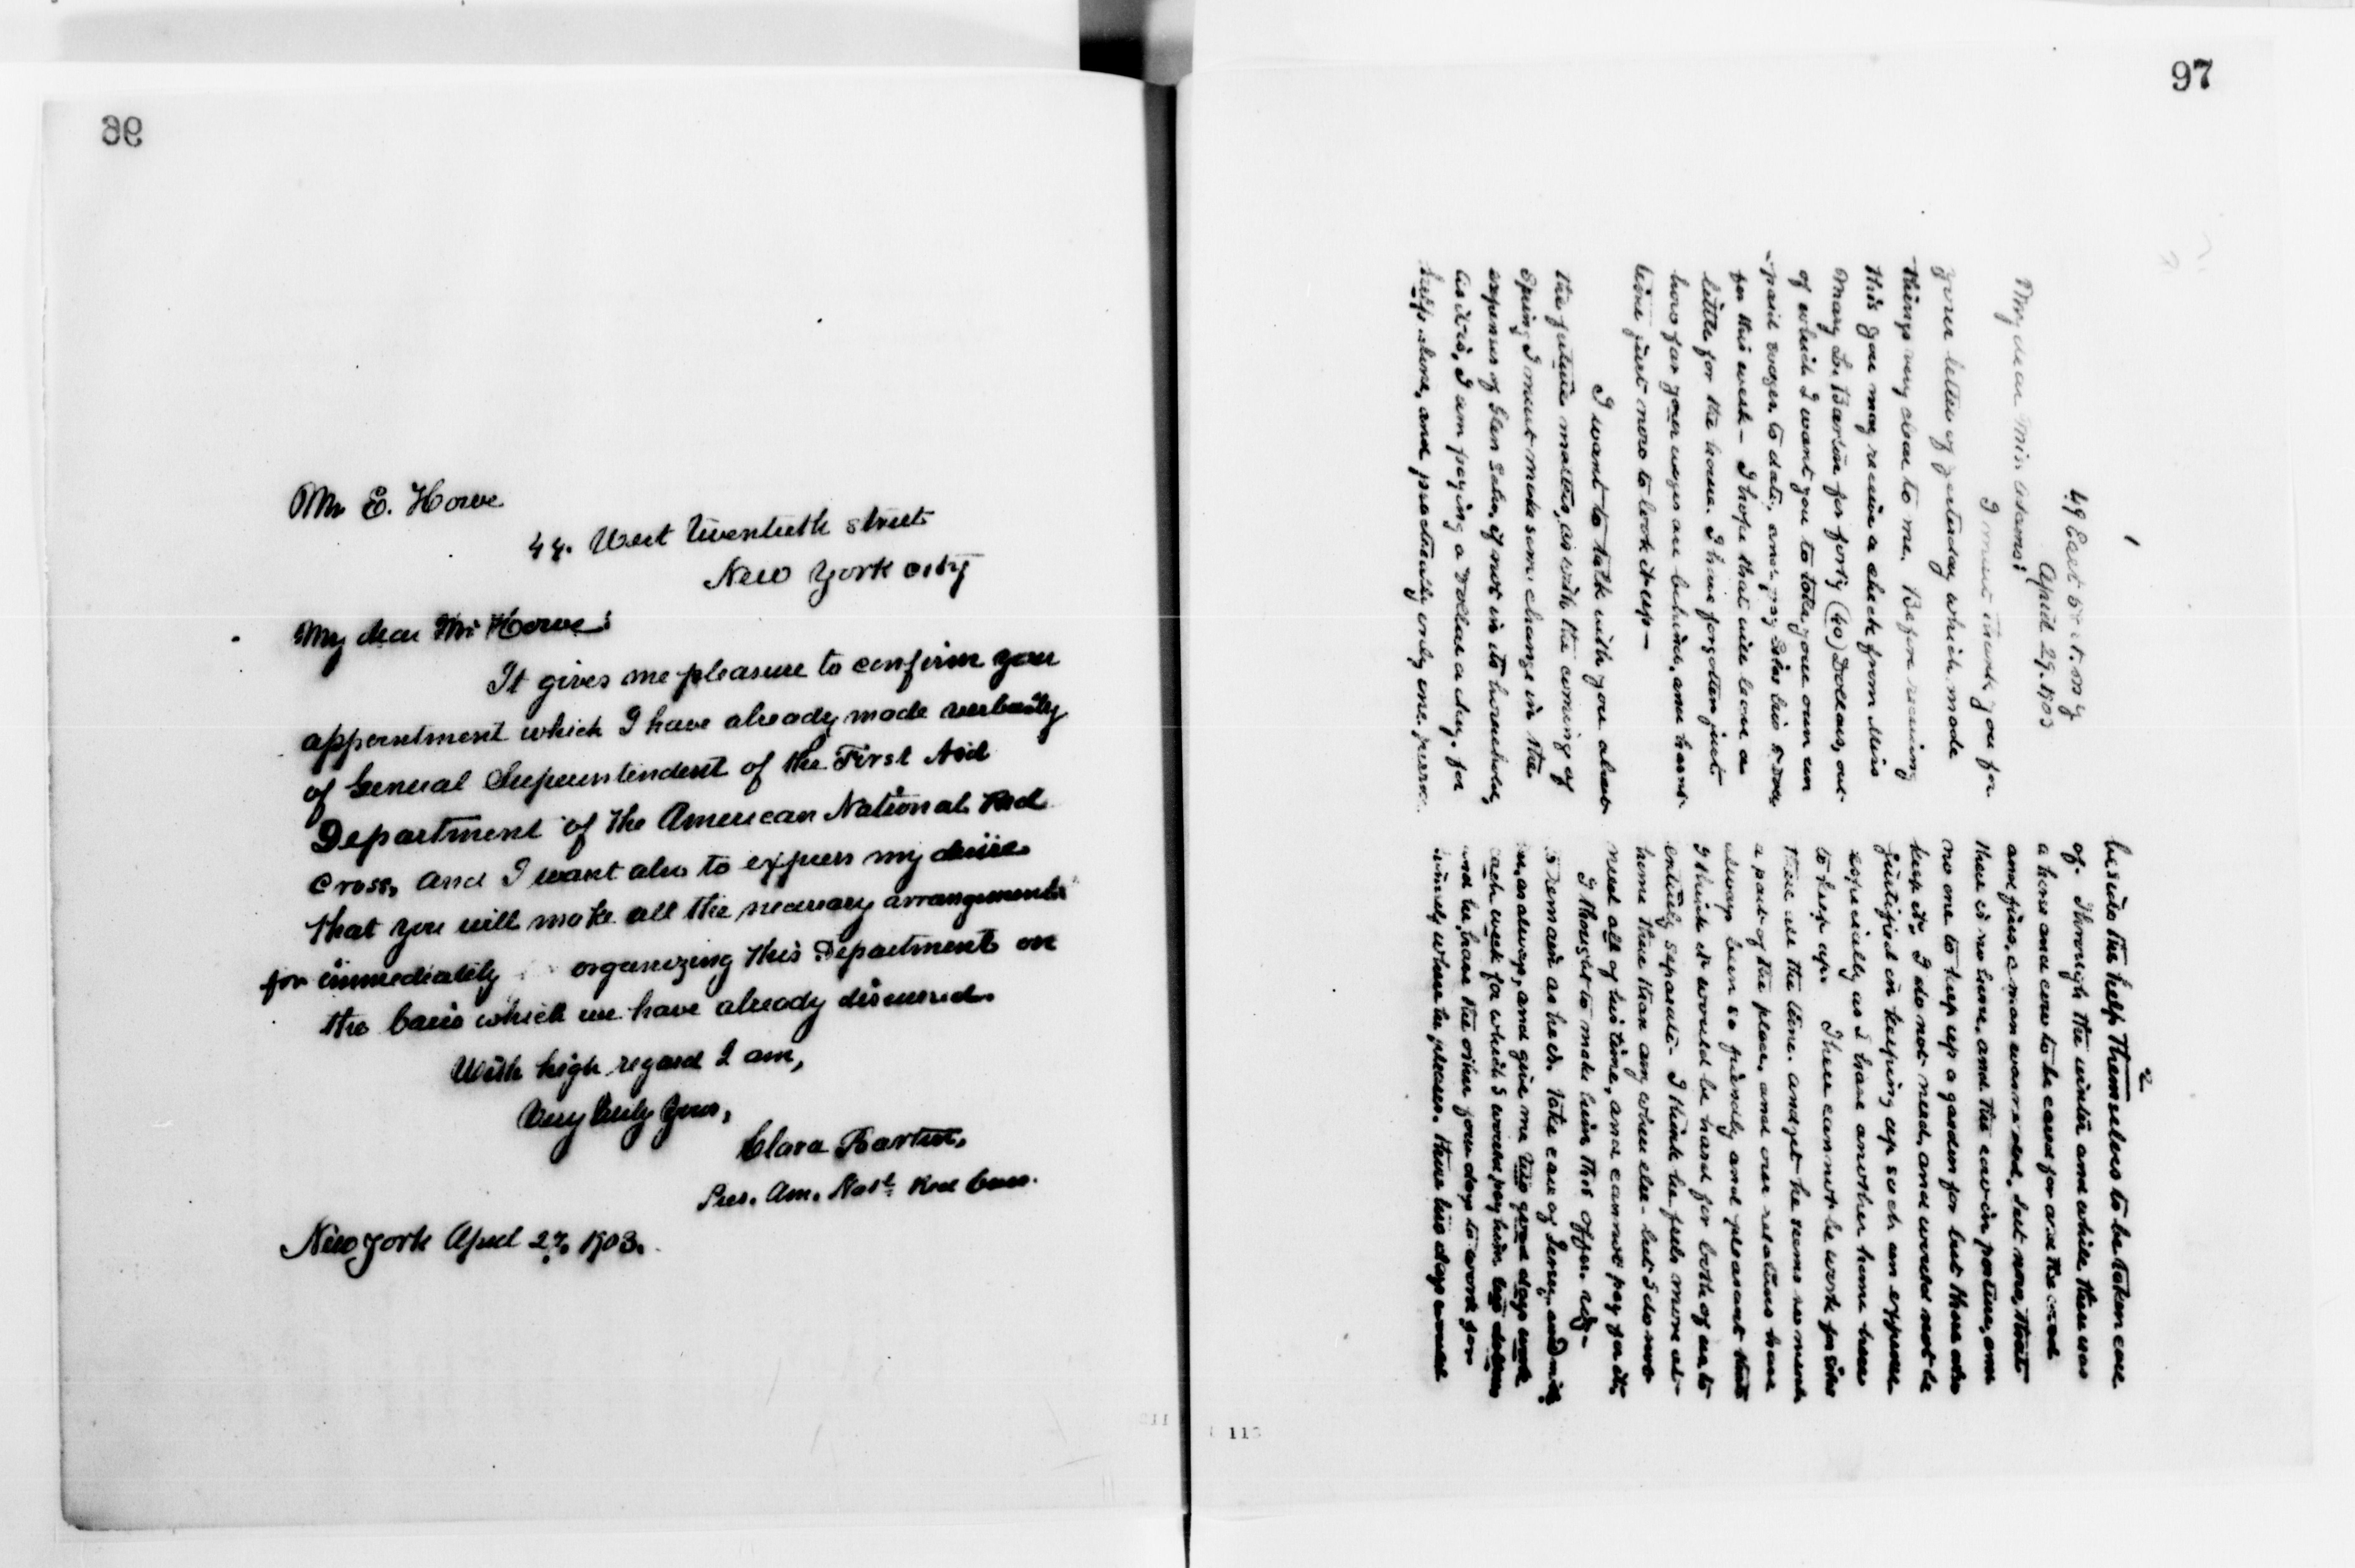 96
Mr E. Howe
44. West Twentieth street
New York city
My dear Mr Howe:
It gives me pleasure to confirm your
appointment which I have already made verbally
of General Superintendent of the First Aid
Department of the American National Red
Cross, and I want also to express my desire
that you will make all the necessary arrangements
for immediately organizing this Department on
the basis which we have already discussed.
With high regard I am,
Very truly yours,
Clara Barton,
Pres. Am. Natl Red Cross.
New York April 27, 1903.
97
1
49 East 5 st. N Y
April 29. 1903
My dear Miss Adams:
I must thank you for
your letter of yesterday which made
things very clear to me. Before receiving
this you may receive a check from Miss
Mary L. Barton for forty (40) Dollars, out
of which I want you to take your own un
-paid wages to date, and pay him 5
for this week - I hope that will leave a
little for the house. I have forgotten just
how far your wages are behind, and havnt
time just now to look it up -
I want to talk with you about
the future matters, as with the coming of
Spring I must make some change in the
expenses of Glen Echo, if not in its household,
as it is, I am paying a Dollar a day for
help alone, and practically only one person
2
beside the help themselves to be taken care
of. Through the winter and while there was
a horse and cow to be cared for and the
and fires, a man was needed, but now, that
there is no horse, and the cow in pasture, and
no one to keep up a garden for but those who
keep it, I do not need, and would not be
justified in keeping up such an expense
especially as I have another home here
to keep up. There cannot be work for
there all the time. and yet he seems so much
a part of the place, and our relations have
always been so friendly and pleasant that
I think it would be hard for both of us to
entirely separate - I think he feels more at
home there than any where else - but I do not
need all of his time, and cannot pay for it,
I thought to make him this offer. -
To remain as he is. Take care of Jersey, and milk
her, as always, and give me two good days work
each week for which I would pay him two dollars
and he, have the other four days to work for
himself where he pleases. These two days would